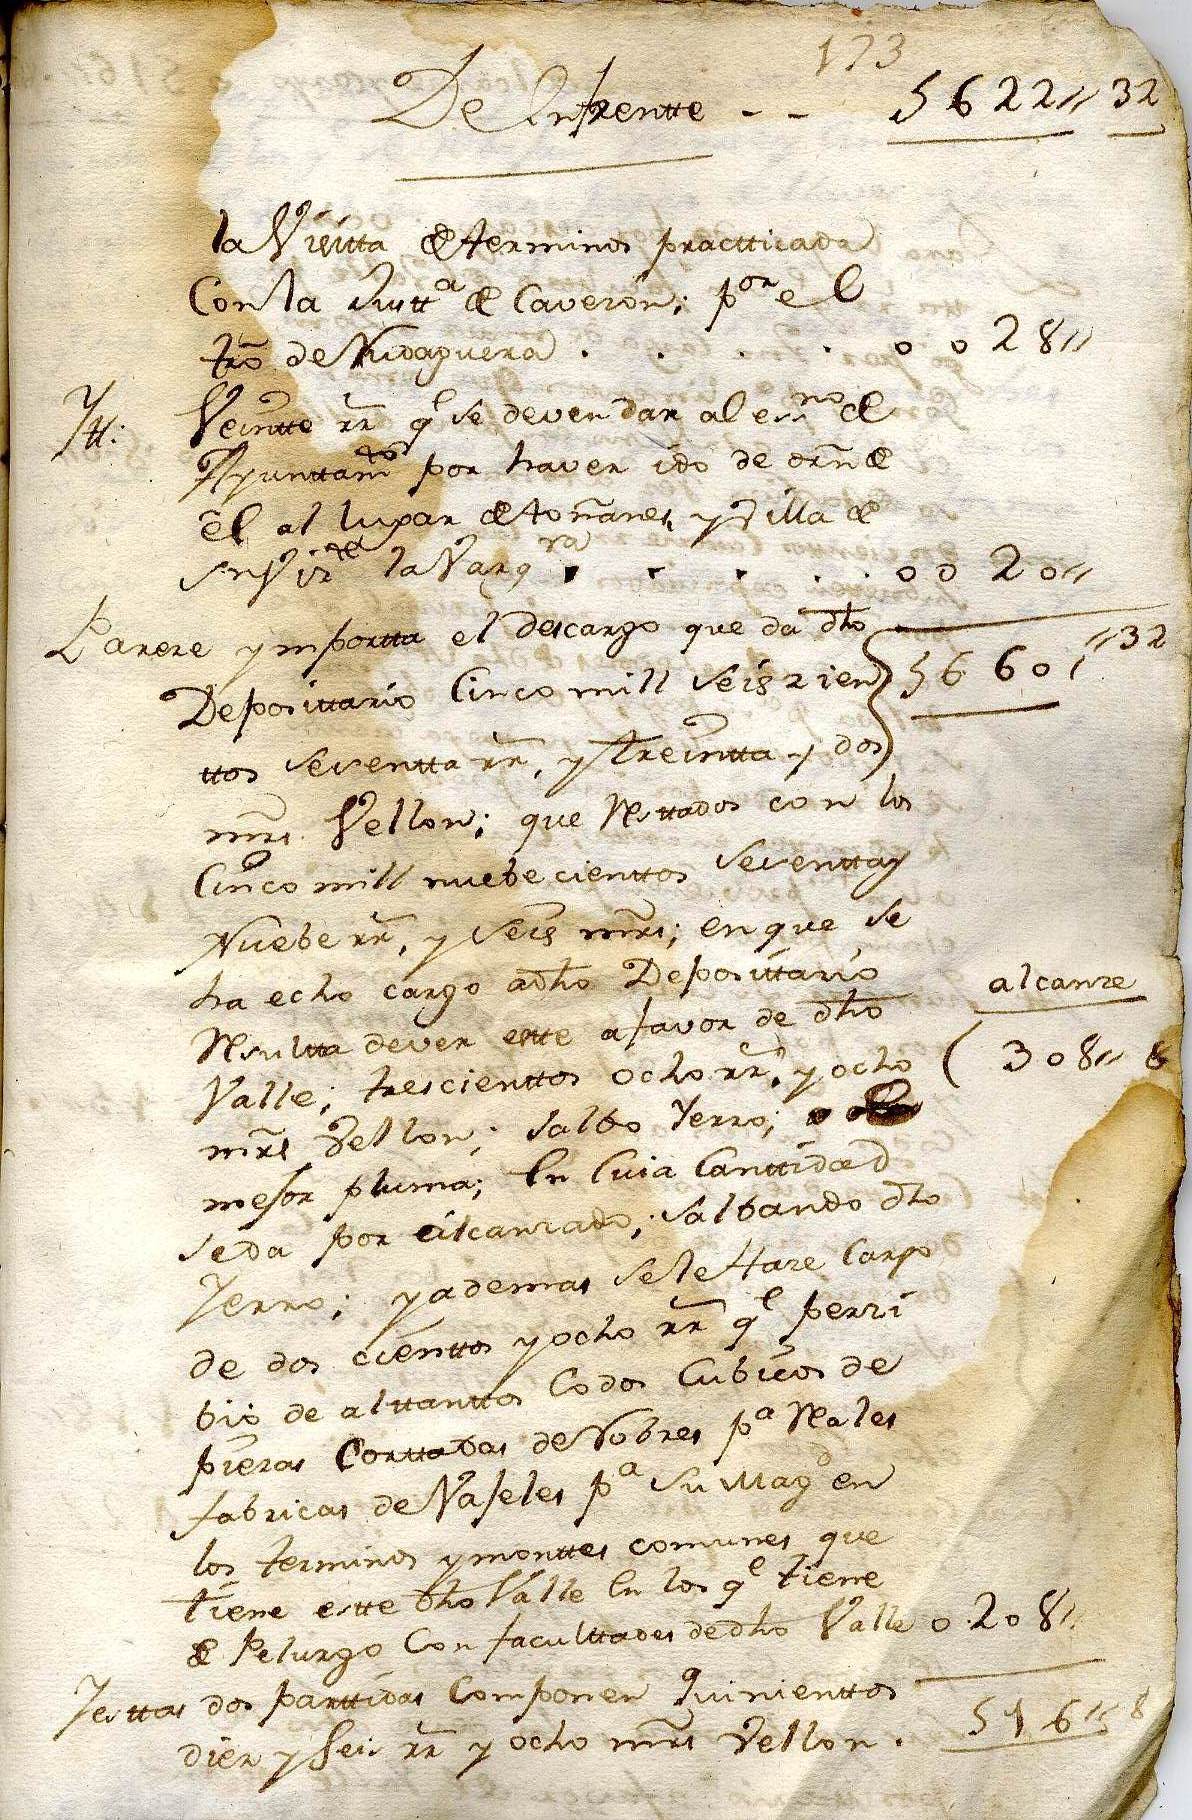 173
De Enfrentte - - 5622,, 32
la Visitta de terminos practticada
Con la Juntta de Caverón; por el
trō de Rudaguera . . . . 0 0 28,,
Ytt: Veintte rr̄ ql se deven dar al essno del
Ayunttamto por haver ido de orn̄ de
él al lugar de toñanes, y Villa de
Sn Vizte la Varqra . . . . . 0 0 20,,
Pareze ymportta el descargo que da dho
Deposittario Cinco mill seiszien 5660,, 32
ttos settentta rr̄, y Treintta y dos
mrs̄ Vellon; que Resttados con los
Cinco mill nuebecienttos settentta y
Nuebe rr̄, y seis mrs̄; en que se
ha echo cargo a dho Deposittario alcanze
Resultta dever estte a favor de dho
Valle; trescienttos ocho rr̄, y ocho ( 308,, 8
mrs̄ Vellon; salbo Yerro;
mejor pluma; En Cuia Canttidad
se da por alcanzado; salbando dho
Yerro; y ademas se le Haze Cargo
de dos cienttos y ocho rr̄ ql perzi
bio de alttanttos Codos Cubicos de
piezas Corttadas de Robres pa Reales
fabricas de Vajeles pa Su Magd en
los terminos y monttes comunes que
tiene estte dho Valle En los ql tiene
de Pelurgo Con faculttades de dho Valle 0.208,,
Yesttas dos parttidas Componen Quinienttos
diez y seis rr̄ y ocho mrs̄ Vellon . 516,, 8